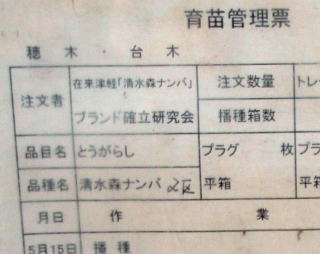 育苗管理票
穂木・台木
注文者 在来津軽「清水森ナンバ」 注文数量 トレ
ブランド確立研究会 播種箱数
品目名 とうがらし プラグ 枚 プラ
品種名 清水森ナンバ 2区 平箱 平箱
月日 作業
5月15日 播種